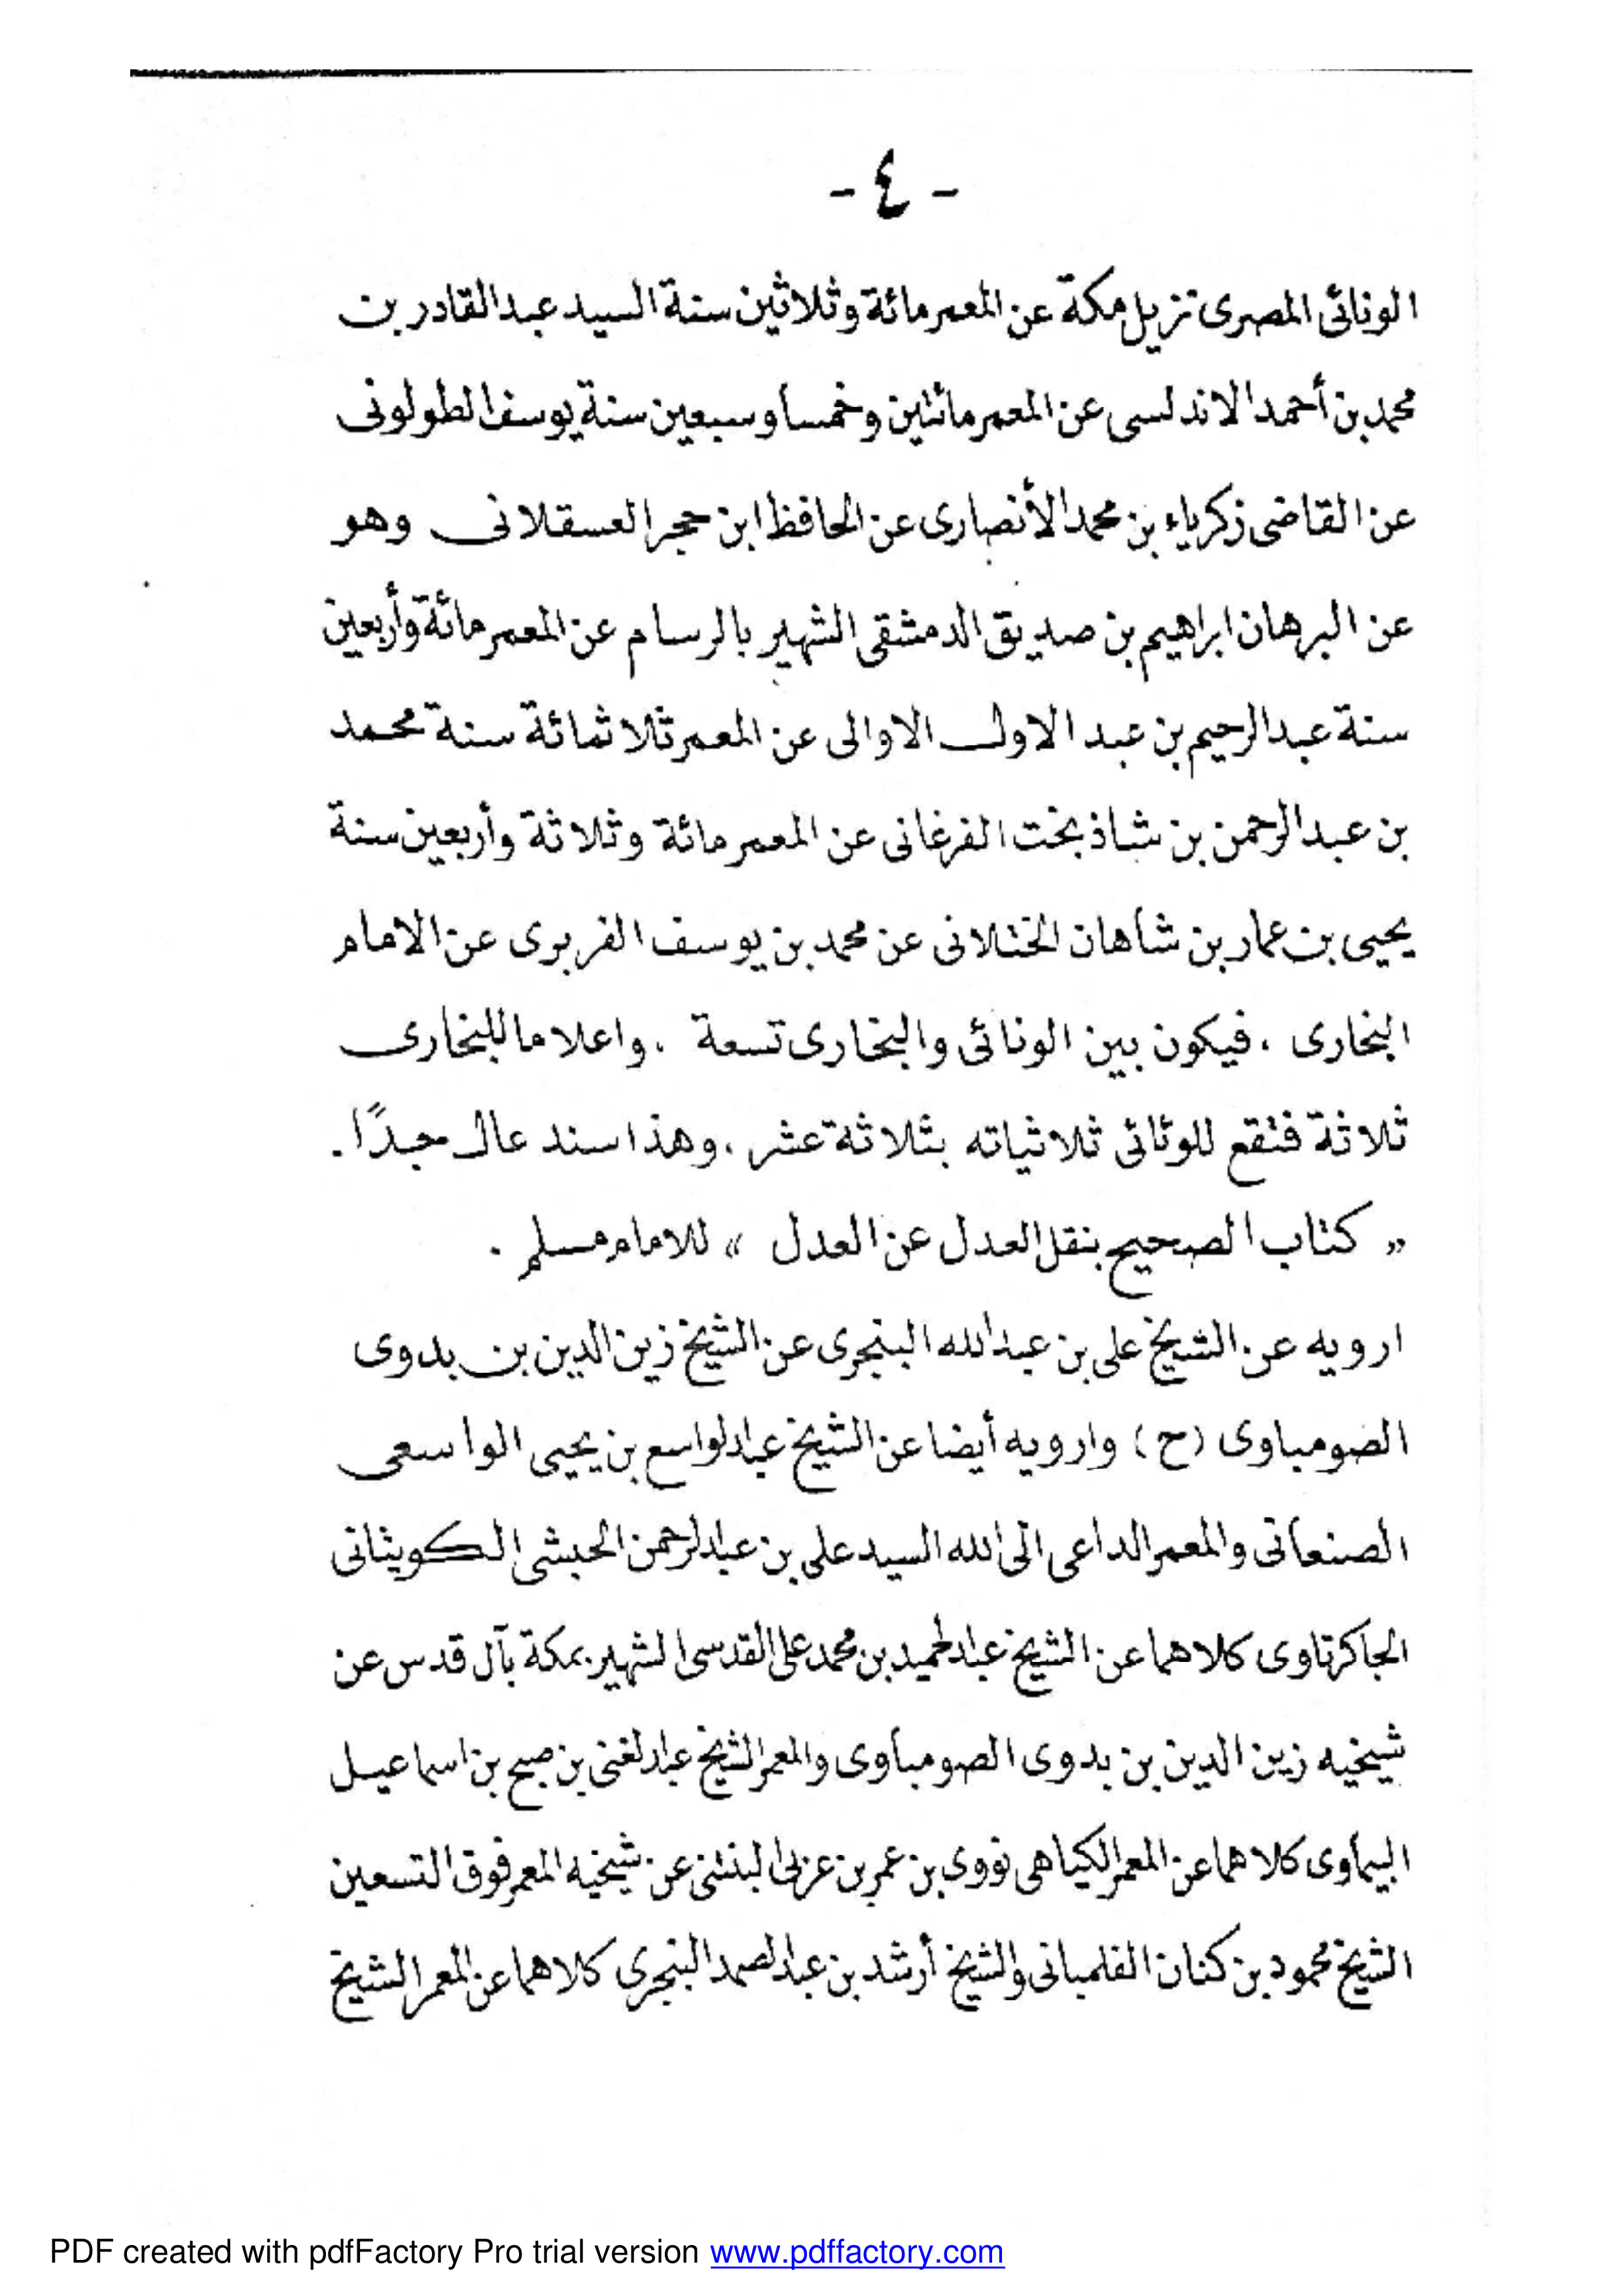 - ٤ -
الونائى المصرى نزيل مكة عن المعمر مائة وثلاثين سنة السيد عبد القادر بن
محمد بن أحمد الاندلسى عن المعمر مائتين وخمسا وسبعين سنة يوسف الطولونى
عن القاضى زكرياء بن محمد الأنصارى عن الحافظ ابن حجر العسقلانى وهو
عن البرهان ابراهيم بن صديق الدمشقى الشهير بالرسام عن المعمر مائة وأربعين
سنة عبد الرحيم بن عبد الاول الاوالى عن المعمر ثلاثمائة سنة محمد
بن عبد الرحمن بن شاذ بخت الفرغانى عن المعمر مائة وثلاثة وأربعين سنة
يحيى بن عمار بن شاهان الختلانى عن محمد بن يوسف الفربرى عن الامام
البخارى ، فيكون بين الونائى والبخارى تسعة ، واعلا ما للبخارى
ثلاثة فتقع للونائى ثلاثياته بثلاثة عشر ، وهذا سند عال جدًا .
« كتاب الصحيح بنقل العدل عن العدل » للامام مسلم .
ارويه عن الشيخ على بن عبد الله البنجرى عن الشيخ زين الدين بن بدوى
الصومباوى (ح) وارويه أيضا عن الشيخ عبد الواسع بن يحيى الواسعى
الصنعانى والمعمر الداعى الى الله السيد على بن عبد الرحمن الحبشى الكويتانى
الجاكرتاوى كلاهما عن الشيخ عبد الحميد بن محمد على القدسى الشهير بمكة بآل قدس عن
شيخيه زين الدين بن بدوى الصومباوى والمعمر الشيخ عبد الغنى بن صبح بن اسماعيل
البيماوى كلاهما عن المعمر الكياهى نووى بن عمر بن عربى البنتنى عن شيخيه المعمر فوق التسعين
الشيخ محمود بن كنان الفلمبانى والشيخ أرشد بن عبد الصمد البنجرى كلاهما عن المعمر الشيخ
PDF created with pdfFactory Pro trial version www.pdffactory.com